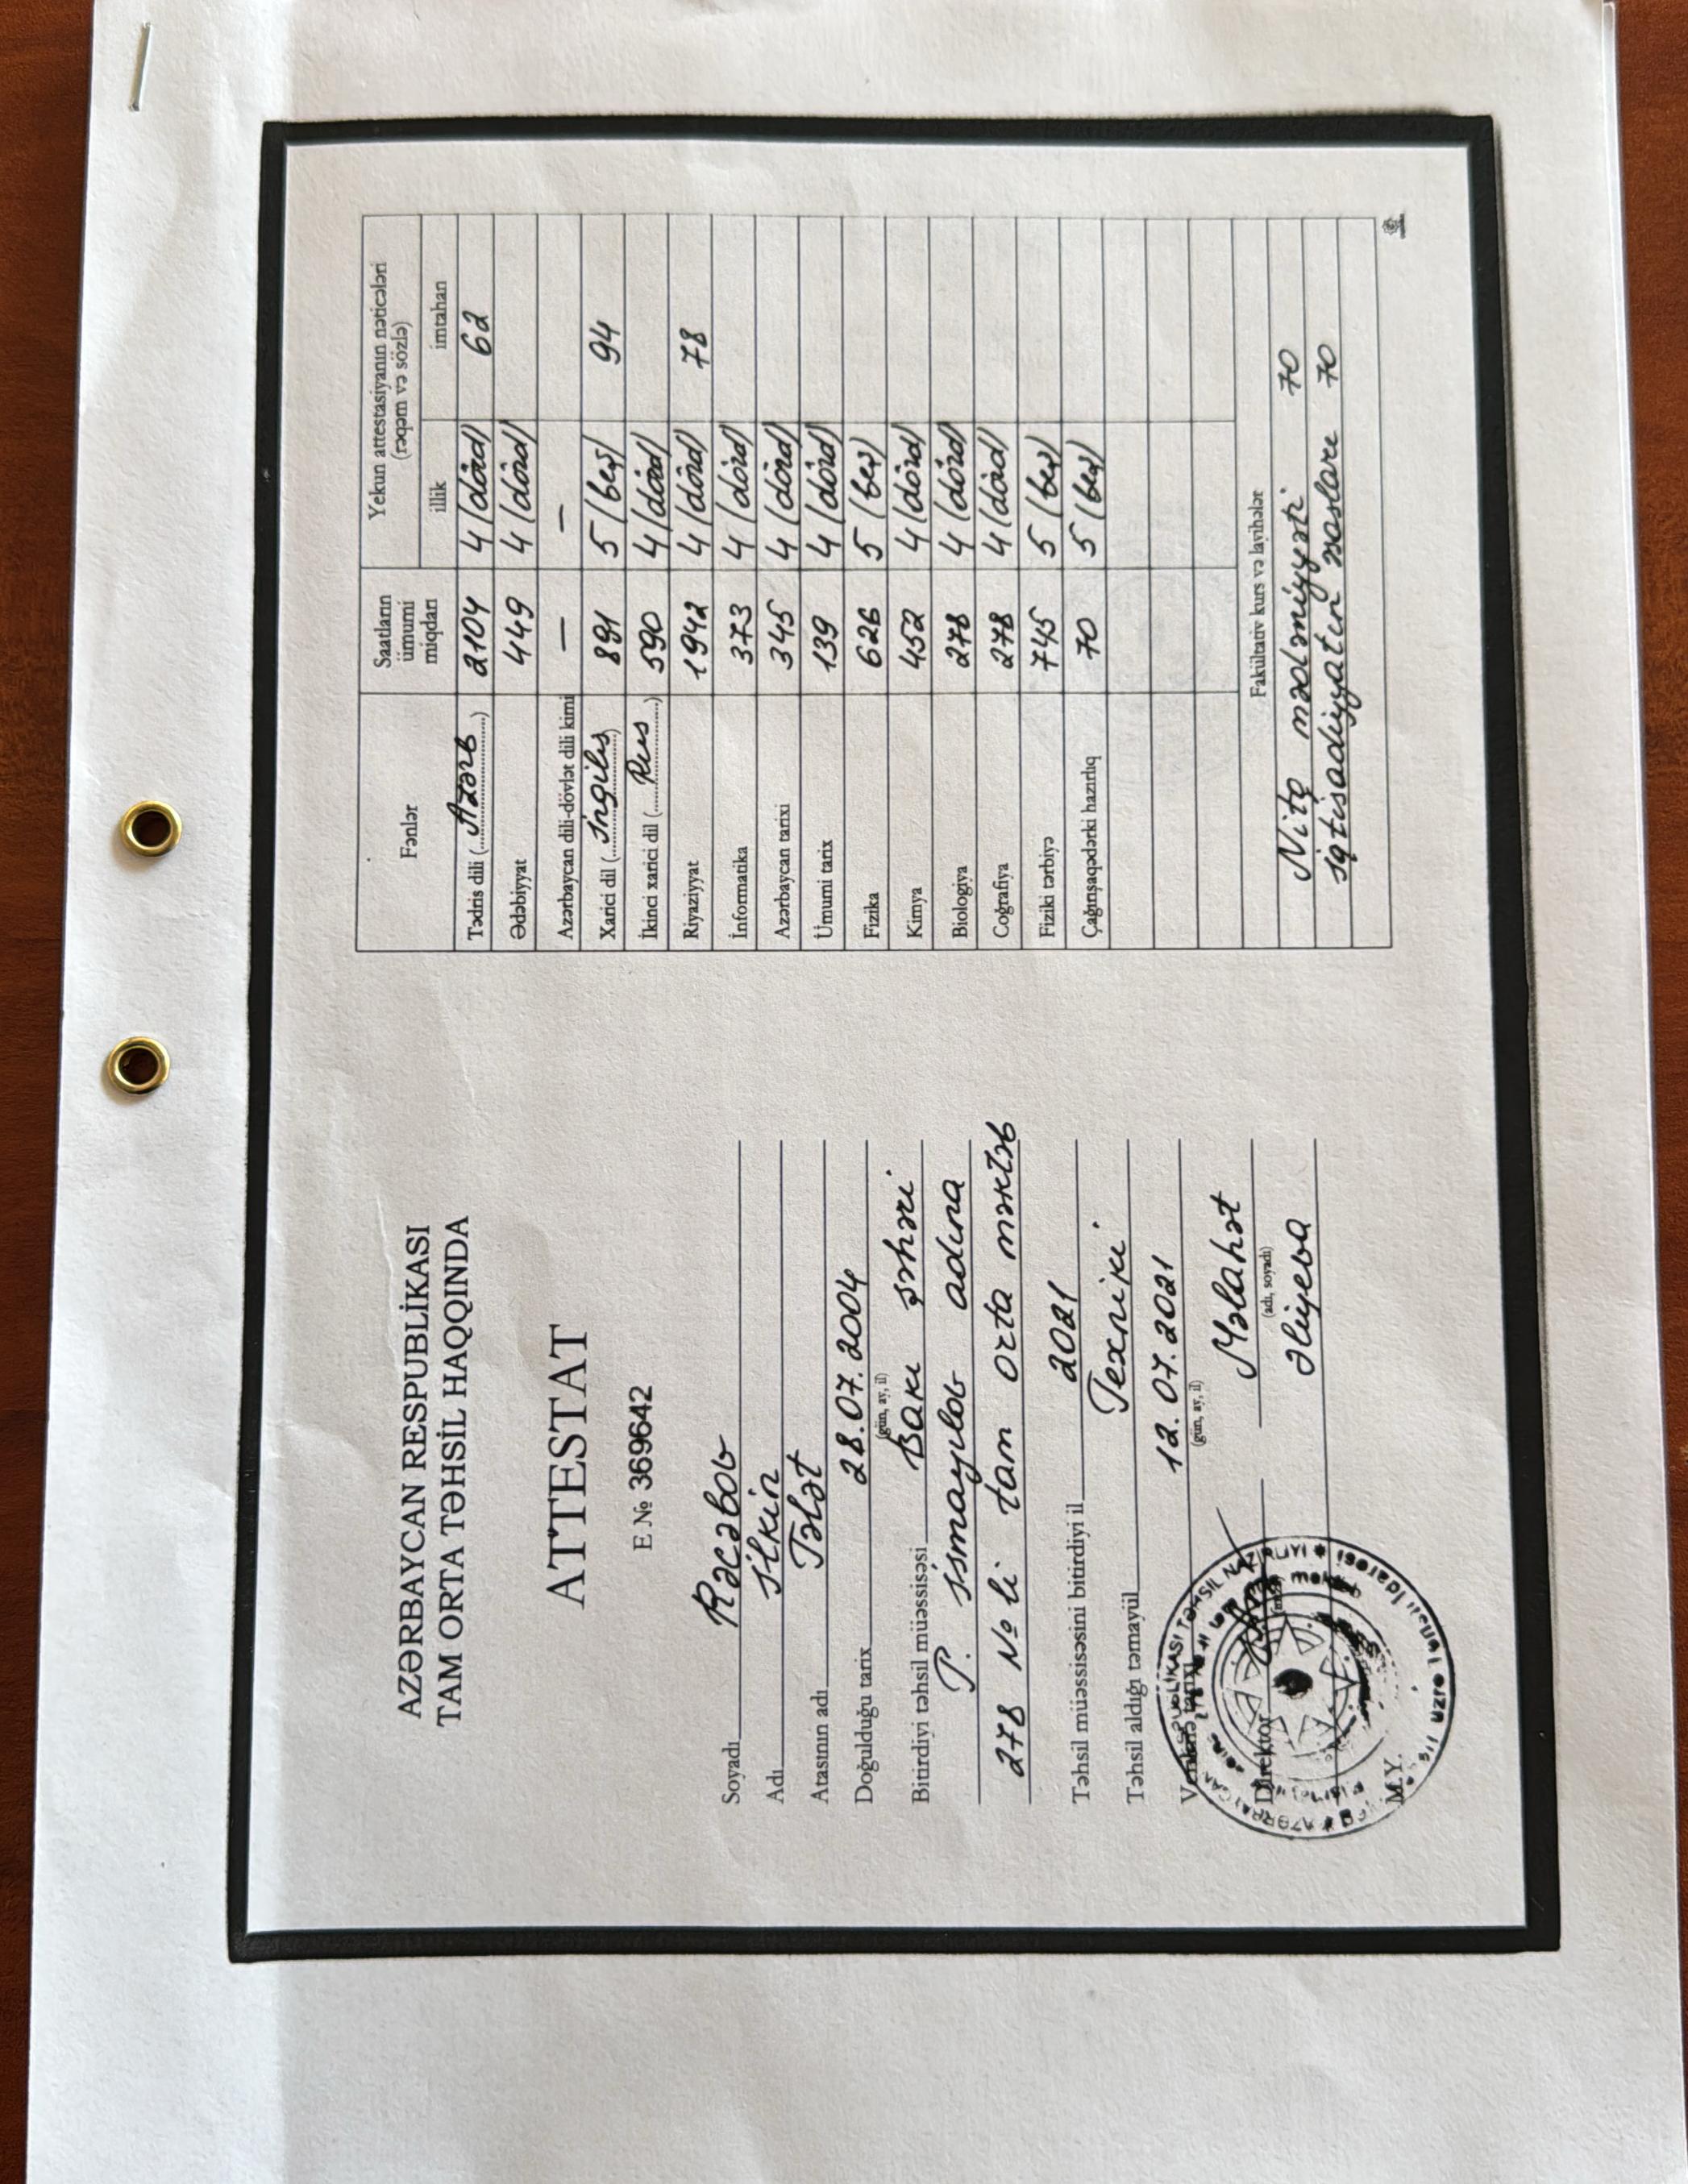 AZƏRBAYCAN RESPUBLİKASI
TAM ORTA TƏHSİL HAQQINDA
ATTESTAT
E № 369642
Soyadı Rəcəbov
Adı İlkin
Atasının adı Tələt
Doğulduğu tarix 28.07.2004
(gün, ay, il)
Bitirdiyi təhsil müəssisəsi Bakı şəhəri
P. İsmayılov adına
278 № li tam orta məktəb
Təhsil müəssisəsini bitirdiyi il 2021
Təhsil aldığı təmayül Texniki.
Verilmə tarixi 12.07.2021
(gün, ay, il)
Direktor Məlahət
(adı, soyadı)
Əliyeva
M.Y.
Fənlər Saatların ümumi miqdarı Yekun attestasiyanın nəticələri
(rəqəm və sözlə)
illik imtahan
Tədris dili (Azərb) 2104 4 (dörd) 62
Ədəbiyyat 449 4 (dörd)
Azərbaycan dili-dövlət dili kimi — —
Xarici dil (İngilis) 891 5 (beş) 94
İkinci xarici dil (Rus) 590 4 (dörd)
Riyaziyyat 1942 4 (dörd) 78
İnformatika 373 4 (dörd)
Azərbaycan tarixi 345 4 (dörd)
Ümumi tarix 139 4 (dörd)
Fizika 626 5 (beş)
Kimya 452 4 (dörd)
Biologiya 278 4 (dörd)
Coğrafiya 278 4 (dörd)
Fiziki tərbiyə 745 5 (beş)
Çağırışaqədərki hazırlıq 70 5 (beş)
Fakültativ kurs və layihələr
Nitq mədəniyyəti 70
İqtisadiyyatın əsasları 70